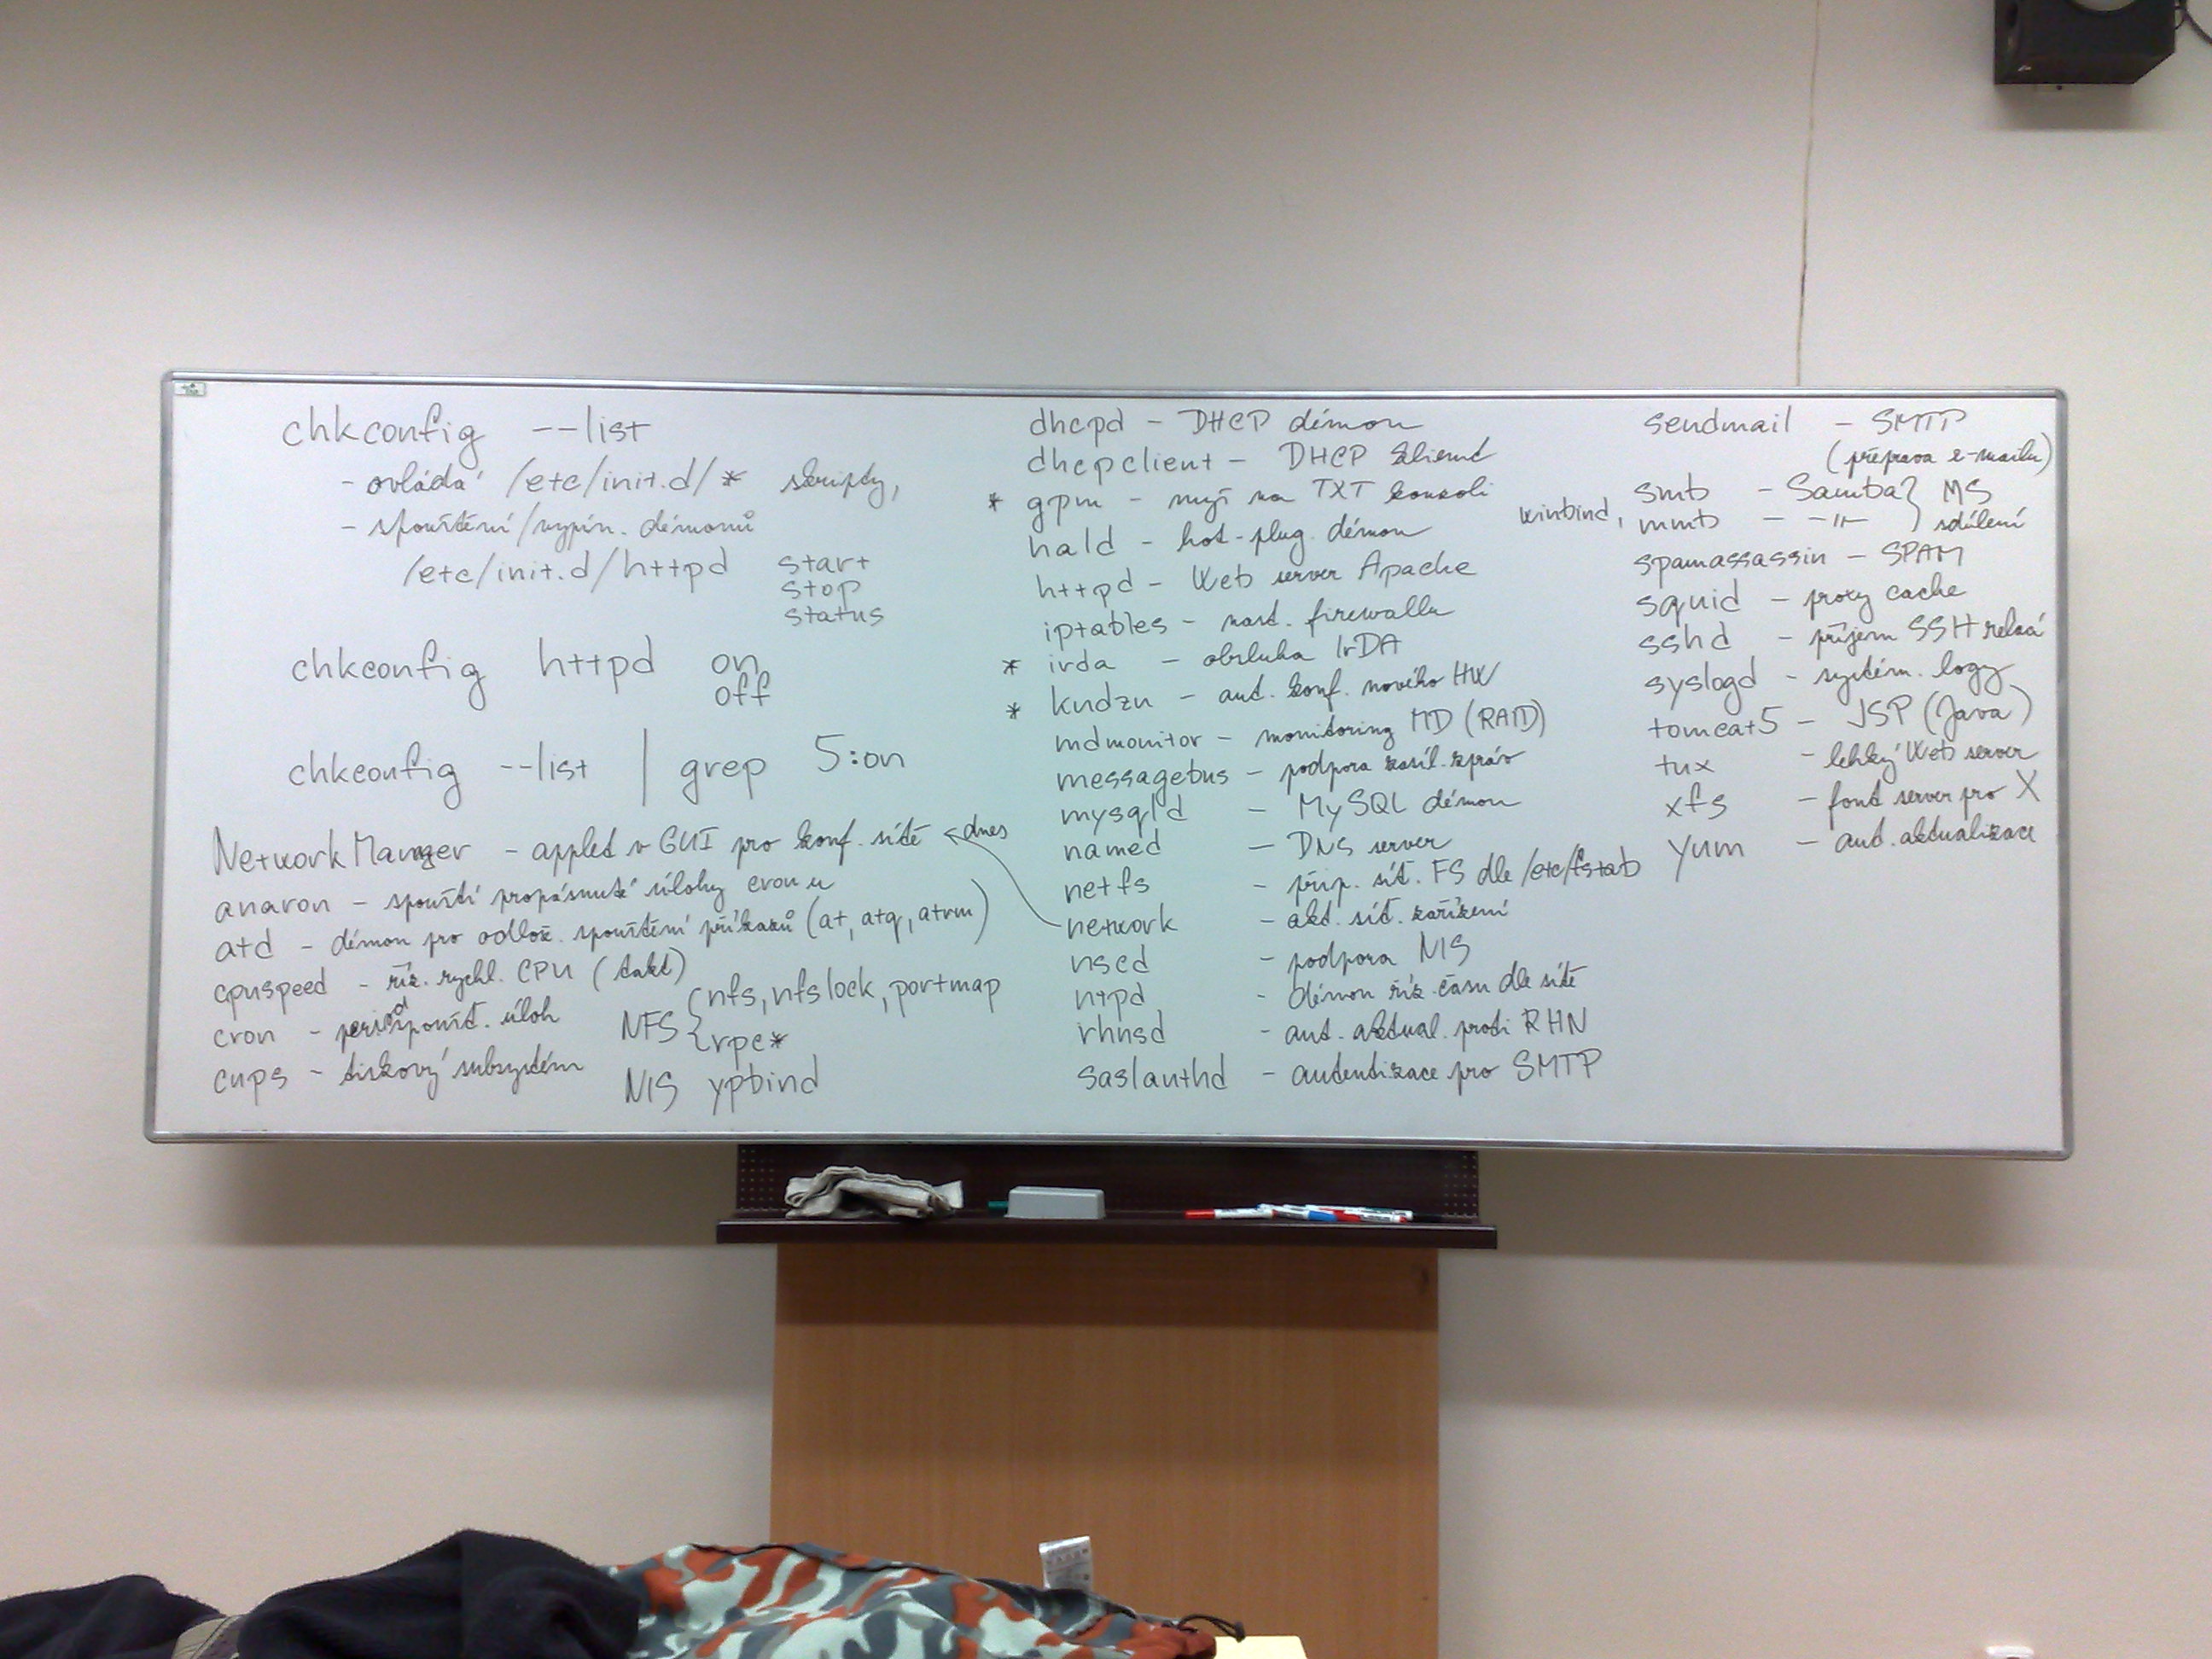 chkconfig --list
- ovládá /etc/init.d/* skripty,
- spouštění/vypín. démonů
/etc/init.d/httpd start
stop
status
chkconfig httpd on
off
chkconfig --list | grep 5:on
NetworkManager - applet v GUI pro konf. sítě ← dnes
anacron - spouští propásnuté úlohy cronu
atd - démon pro odlož. spouštění příkazů (at, atq, atrm)
cpuspeed - říz. rychl. CPU (takt)
cron - period. spoušt. úloh
cups - tiskový subsystém
NFS { nfs, nfslock, portmap
rpc*
NIS ypbind
dhcpd - DHCP démon
dhcpclient - DHCP klient
* gpm - myš na TXT konzoli
hald - hot-plug. démon
httpd - Web server Apache
iptables - nast. firewallu
* irda - obsluha IrDA
* kudzu - aut. konf. nového HW
mdmonitor - monitoring MD (RAID)
messagebus - podpora zasíl. zpráv
mysqld - MySQL démon
named - DNS server
netfs - přip. sít. FS dle /etc/fstab
network - akt. sít. zařízení
nscd - podpora NIS
ntpd - démon říz. času dle sítě
rhnsd - aut. aktual. proti RHN
saslauthd - autentizace pro SMTP
sendmail - SMTP
(přeprava e-mailu)
smb - Samba } MS
winbind, nmb - -"- } sdílení
spamassassin - SPAM
squid - proxy cache
sshd - příjem SSH relací
syslogd - systém. logy
tomcat5 - JSP (Java)
tux - lehký Web server
xfs - font server pro X
yum - aut. aktualizace